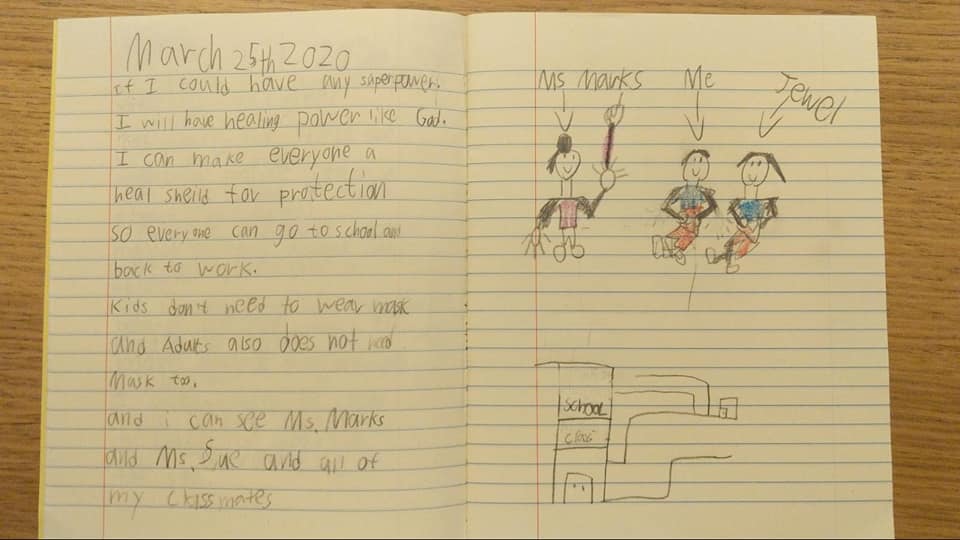 March 25th 2020
if I could have any superpower.
I will have healing power like God.
I can make everyone a
heal sheild for protection
so everyone can go to school and
back to work.
Kids don't need to wear mask
and Adults also does not need
mask too.
and i can see Ms. Marks
and Ms. Sue and all of
my classmates
Ms Marks
Me
Jewel
SCHOOL